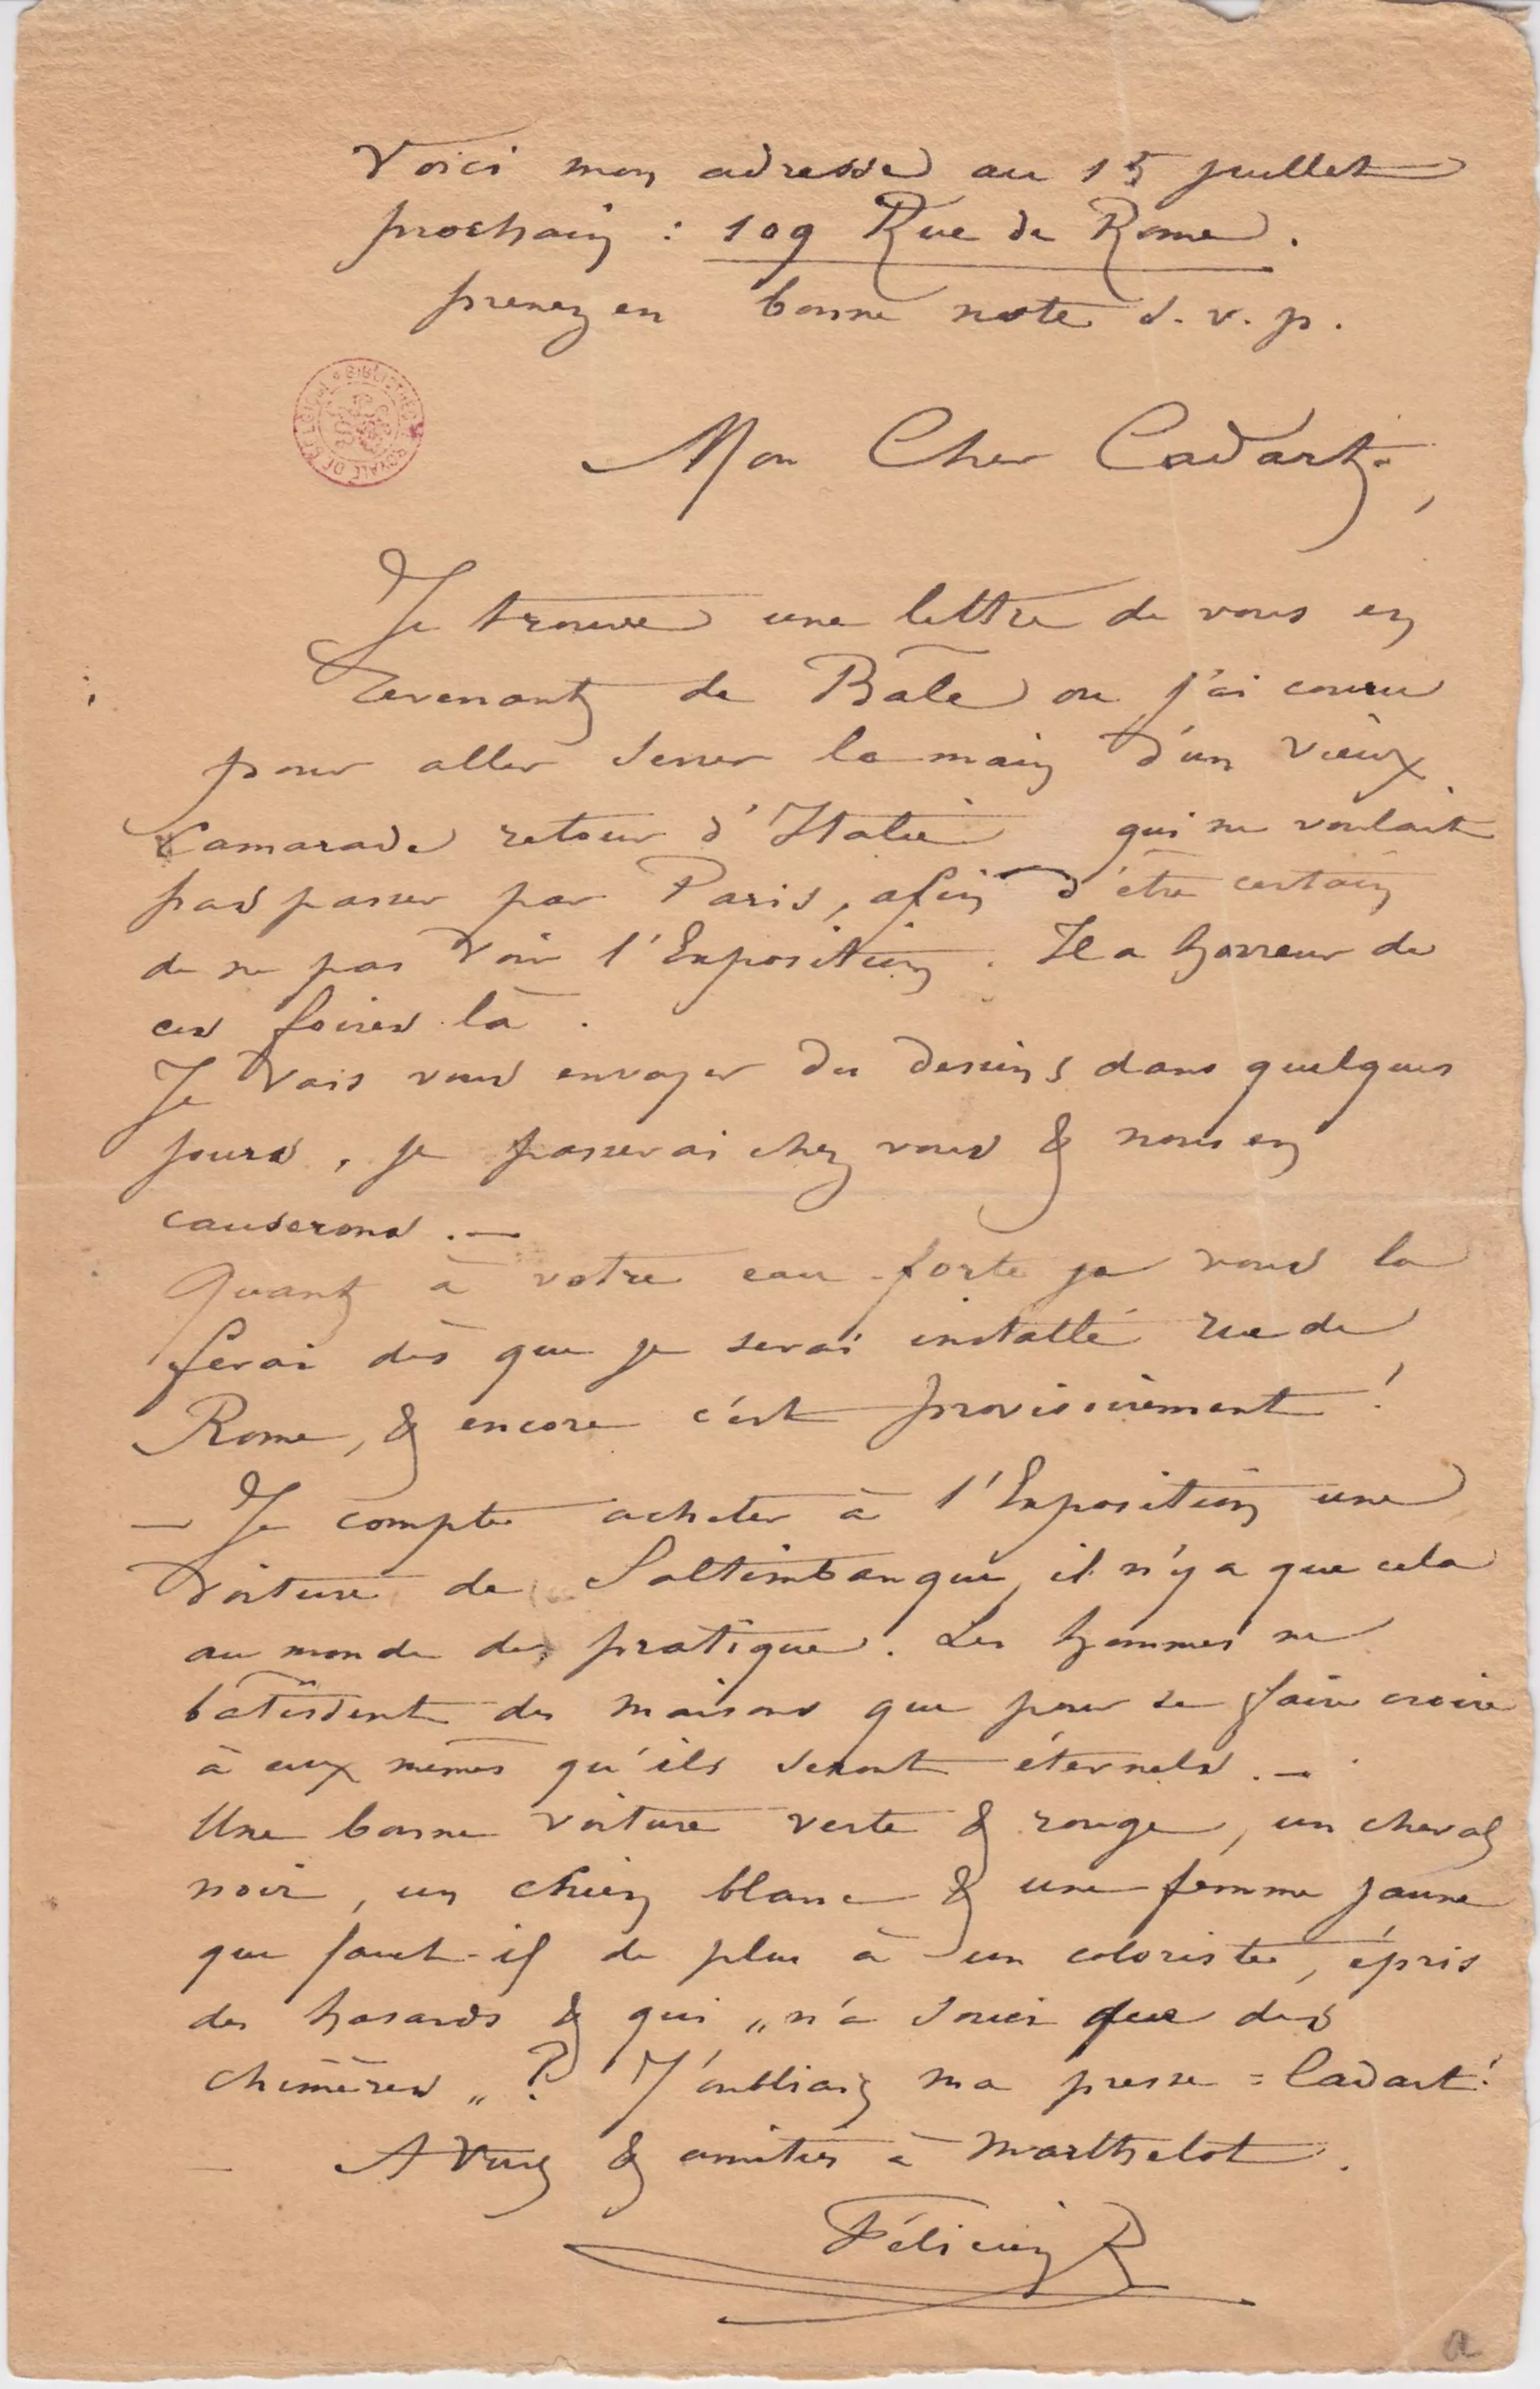 Voici mon adresse au 15 juillet
prochain : 109 Rue de Rome.
prenez en bonne note s.v.p.
BIBLIOTHÈQUE ROYALE DE BELGIQUE
Mon Cher Cadart,
Je trouve une lettre de vous en
revenant de Bâle ou j'ai couru
pour aller serrer la main d'un vieux
camarade retour d'Italie qui ne voulait
pas passer par Paris, afin d'être certain
de ne pas voir l'Exposition. Il a horreur de
ces foires là.
Je vais vous envoyer des dessins dans quelques
jours, je passerai chez vous & nous en
causerons. —
Quant à votre eau-forte je vous la
ferai dès que je serai installé rue de
Rome, & encore c'est provisoirement !
— Je compte acheter à l'Exposition une
voiture de Saltimbanque, il n'y a que cela
au monde de pratique. Les hommes ne
bâtissent des maisons que pour se faire croire
à eux mêmes qu'ils seront éternels. —
Une bonne voiture verte & rouge, un cheval
noir, un chien blanc & une femme jaune
que faut-il de plus à un coloriste, épris
des hasards & qui „n'a souci que des
chimères„ ? J'oubliais ma presse = Cadart !
— A Vous & amitiés à Marthelot.
Félicien R
a